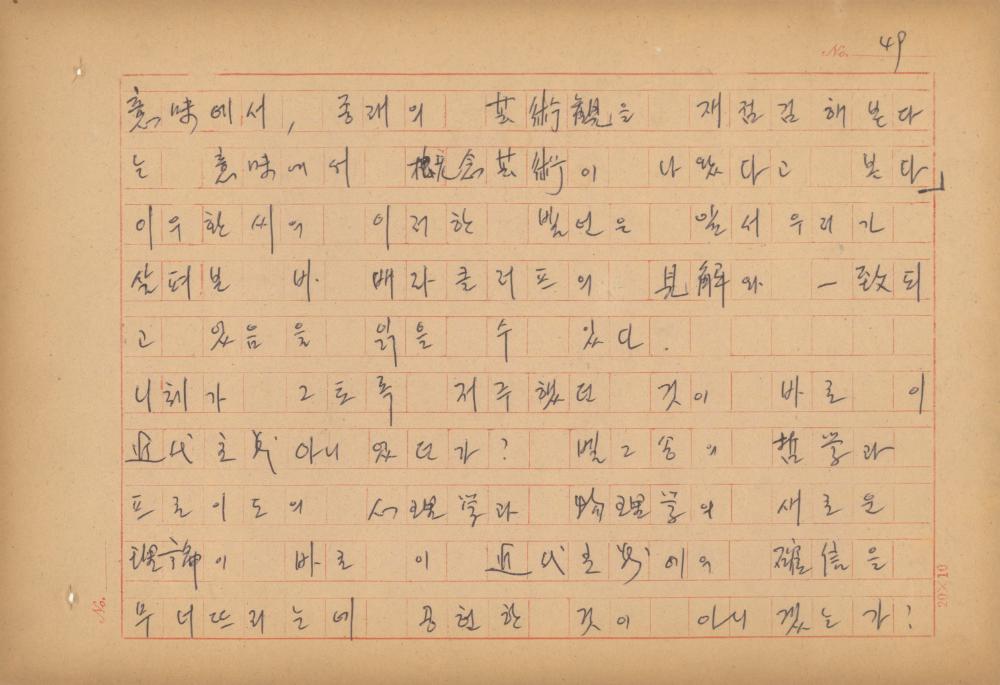 No. 49
意味에서, 종래의 芸術観을 재점검해본다
는 意味에서 概念芸術이 나왔다고 본다」
이우환씨의 이러한 발언은 앞서 우리가
살펴본 바 배라클러프의 見解와 一致되
고 있음을 읽을 수 있다.
니체가 그토록 저주했던 것이 바로 이
近代主義 아니었던가? 벨그송의 哲学과
프로이드의 心理学과 物理学의 새로운
理論이 바로 이 近代主義에의 確信을
무너뜨리는데 공헌한 것이 아니겠는가?
No.
20×10